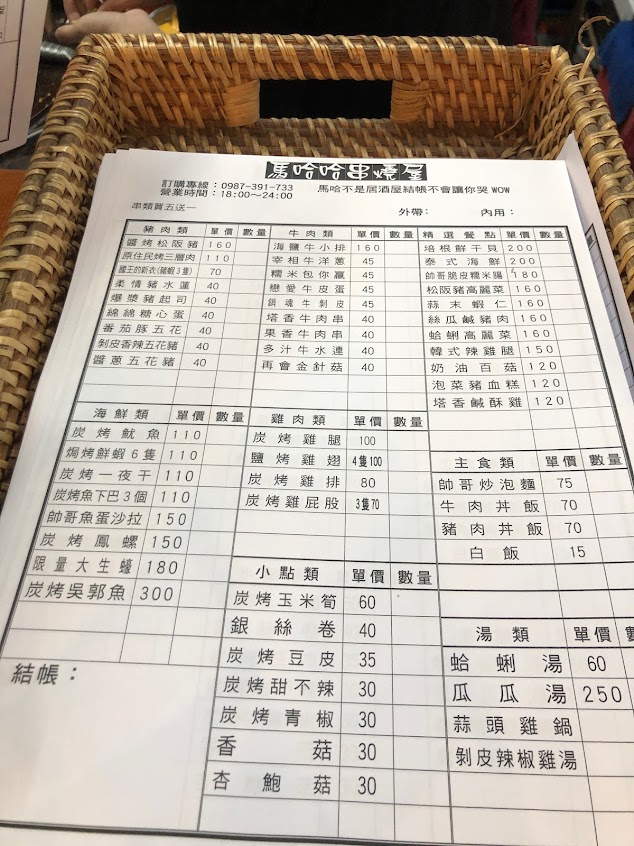 馬哈哈串燒屋
訂購專線：0987-391-733 馬哈不是居酒屋結帳不會讓你哭WOW
營業時間：18:00~24:00
串類買五送一 外帶： 內用：
豬肉類 單價 數量
醬烤松阪豬 160
原住民烤三層肉 110
國王的新衣(豬蝦3隻) 70
柔情豬水蓮 40
爆漿豬起司 40
綿綿糖心蛋 40
番茄豚五花 40
剝皮香辣五花豬 40
醬蔥五花豬 40
牛肉類 單價 數量
海鹽牛小排 160
宰相牛洋蔥 45
糯米包你贏 45
戀愛牛皮蛋 45
銷魂牛剝皮 45
塔香牛肉串 40
果香牛肉串 40
多汁牛水連 40
再會金針菇 40
精選餐點 單價 數量
培根鮮干貝 200
泰式海鮮 200
帥哥脆皮糯米腸 180
松阪豬高麗菜 160
蒜末蝦仁 160
絲瓜鹹豬肉 160
蛤蜊高麗菜 160
韓式辣雞腿 150
奶油百菇 120
泡菜豬血糕 120
塔香鹹酥雞 120
海鮮類 單價 數量
炭烤魷魚 110
焗烤鮮蝦6隻 110
炭烤一夜干 110
炭烤魚下巴3個 110
帥哥魚蛋沙拉 150
炭烤鳳螺 150
限量大生蠔 180
炭烤吳郭魚 300
雞肉類 單價 數量
炭烤雞腿 100
鹽烤雞翅 4隻100
炭烤雞排 80
炭烤雞屁股 3隻70
主食類 單價 數量
帥哥炒泡麵 75
牛肉丼飯 70
豬肉丼飯 70
白飯 15
小點類 單價 數量
炭烤玉米筍 60
銀絲卷 40
炭烤豆皮 35
炭烤甜不辣 30
炭烤青椒 30
香菇 30
杏鮑菇 30
湯類 單價 數量
蛤蜊湯 60
瓜瓜湯 250
蒜頭雞鍋
剝皮辣椒雞湯
結帳：